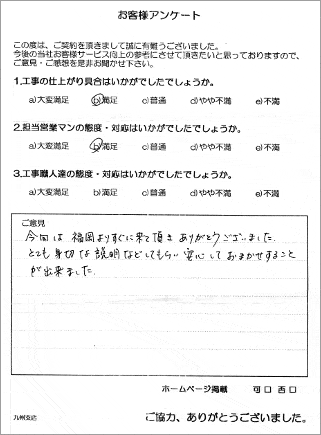 お客様アンケート
この度は、ご契約を頂きまして誠に有難うございました。
今後の当社お客様サービス向上の参考にさせて頂きたいと思っておりますので、
ご意見・ご感想を是非お聞かせ下さい。
1.工事の仕上がり具合はいかがでしたでしょうか。
a)大変満足 b)満足 c)普通 d)やや不満 e)不満
2.担当営業マンの態度・対応はいかがでしたでしょうか。
a)大変満足 b)満足 c)普通 d)やや不満 e)不満
3.工事職人達の態度・対応はいかがでしたでしょうか。
a)大変満足 b)満足 c)普通 d)やや不満 e)不満
ご意見
今回は 福岡よりすぐに来て頂き ありがとうございました.
とても 親切な 説明などしてもらい 安心して おまかせすること
が出来ました.
ホームページ掲載 可口 否口
九州支店
ご協力、ありがとうございました。